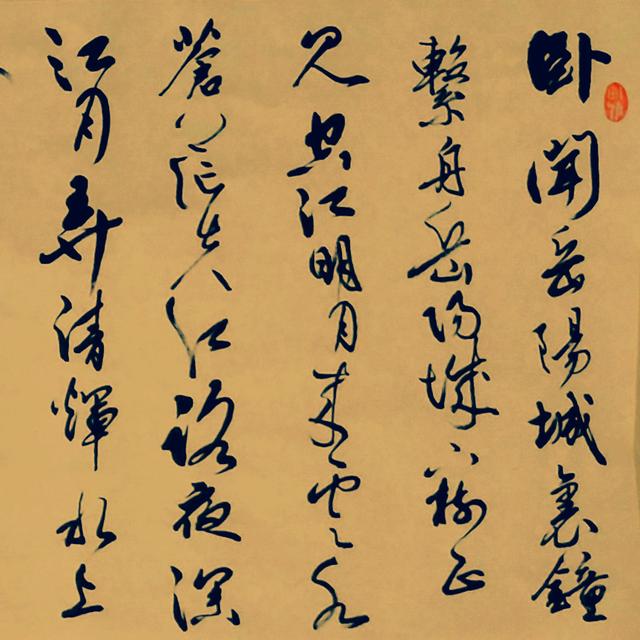 卧聞岳陽城裏鐘
繫舟岳陽城下樹正
見空江明月来雲水
蒼茫失江路夜深
江月弄清輝水上